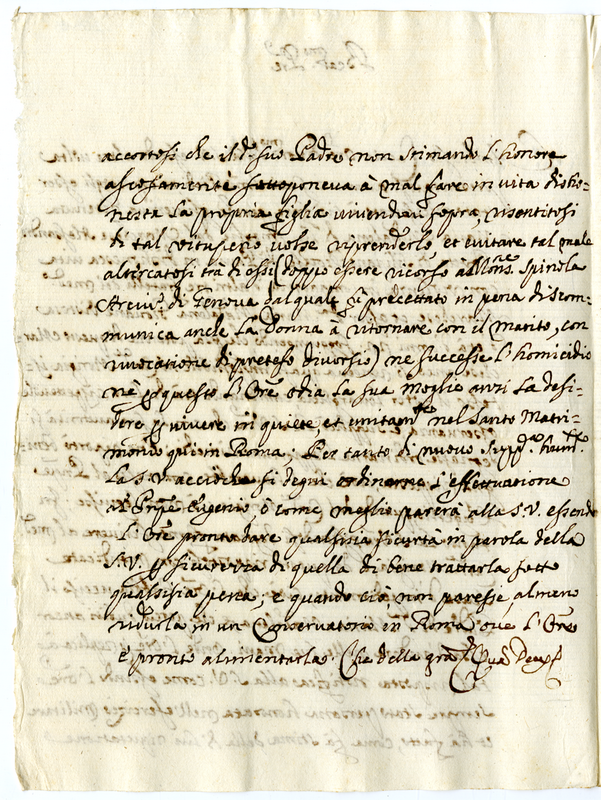 accortosi che il d.º suo Padre non stimando l'honore
ascosamente sottoponeva à mal fare in vita disho-
nesta la propria figlia vivendovi sopra, risentitosi
di tal vituperio volse riprenderlo, et evitare tal male
altercatosi trà di essi (doppo essere ricorso à Mons.re Spinola
Arciv.º di Genova dal quale fù precettato in pena di scom-
munica anche la Donna à ritornare con il marito, con
rivocatione di preteso divorsio) ne successe l'homicidio
nè p questo l'Ore odia la sua moglie anzi la desi-
dera p vivere in quiete, et unitam.te nel Santo Matri-
monio qui in Roma; Per tanto di nuovo Supp.ca hum.te
la S.V. acciochè si degni ordinarne l'effettuatione
al Pnpe Eugenio, ò come meglio parerà alla S.V. essendo
l'Ore pronto dare qualsisia sicurtà in parola della
S.V. p sicurezza di quella di bene trattarla sotto
qualsisia pena; e quando ciò non paresse, almeno
ridurla in un Conservatorio in Roma, ove l'Ore
è pronto alimentarla. Che della gra Quà Deus